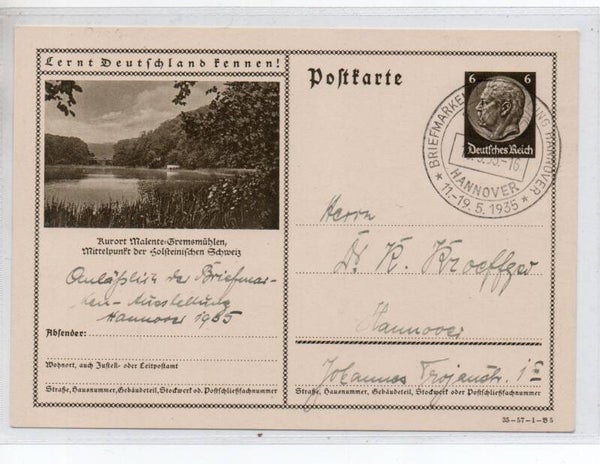 Lernt Deutschland kennen!
Kurort Malente-Gremsmühlen,
Mittelpunkt der Holsteinischen Schweiz
Anläßlich der Briefmar-
ken-Ausstellung
Hannover 1935
Absender:
Wohnort, auch Zustell- oder Leitpostamt
Straße, Hausnummer, Gebäudeteil, Stockwerk od. Postschließfachnummer
Postkarte
6 6
Deutsches Reich
BRIEFMARKEN HANNOVER
HANNOVER
11.-19.5.1935
Herrn
Dr. K.
Hannover
Johannes Trojanstr. 1
Straße, Hausnummer, Gebäudeteil, Stockwerk oder Postschließfachnummer
35-57-1-B5